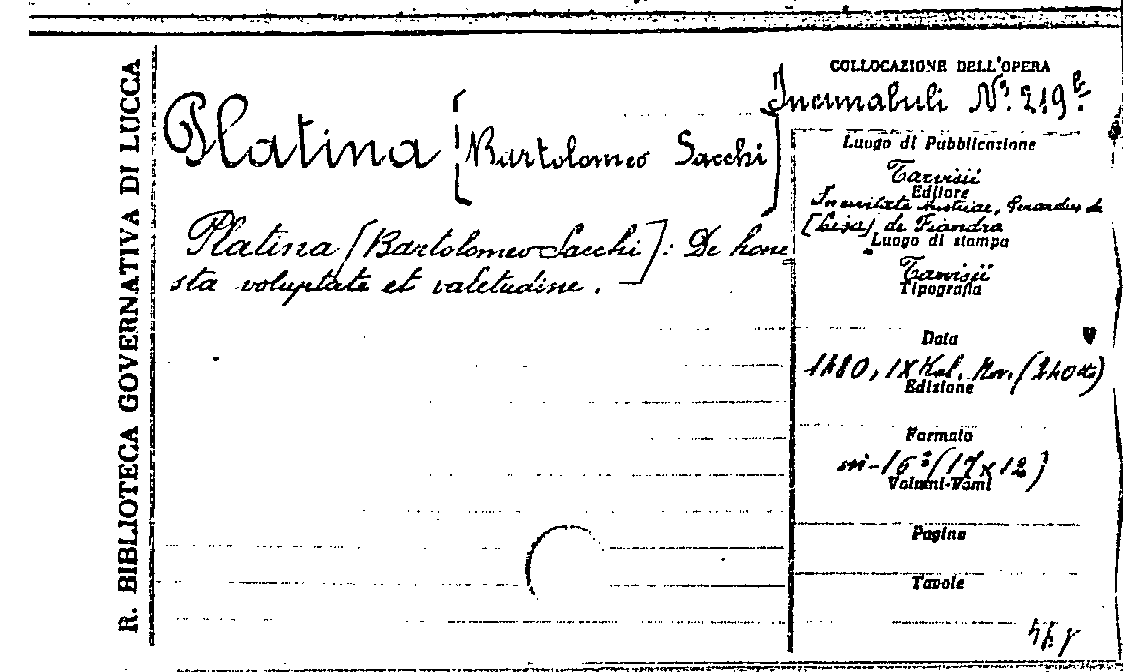 R. BIBLIOTECA GOVERNATIVA DI LUCCA
Platina [Bartolomeo Sacchi]
Platina [Bartolomeo Sacchi]: De hone
sta voluptate et valetudine.
COLLOCAZIONE DELL'OPERA
Incunabuli N.º 219 b.
Luogo di Pubblicazione
Tarvisii
Editore
Gerardus de
[Lisa] de Fiandra
Luogo di stampa
Tarvisii
Tipografia
Data
1480, IX Kal. Nov. (24 Ott)
Edizione
Formato
in-16º (17x12)
Volumi-Tomi
Pagine
Tavole